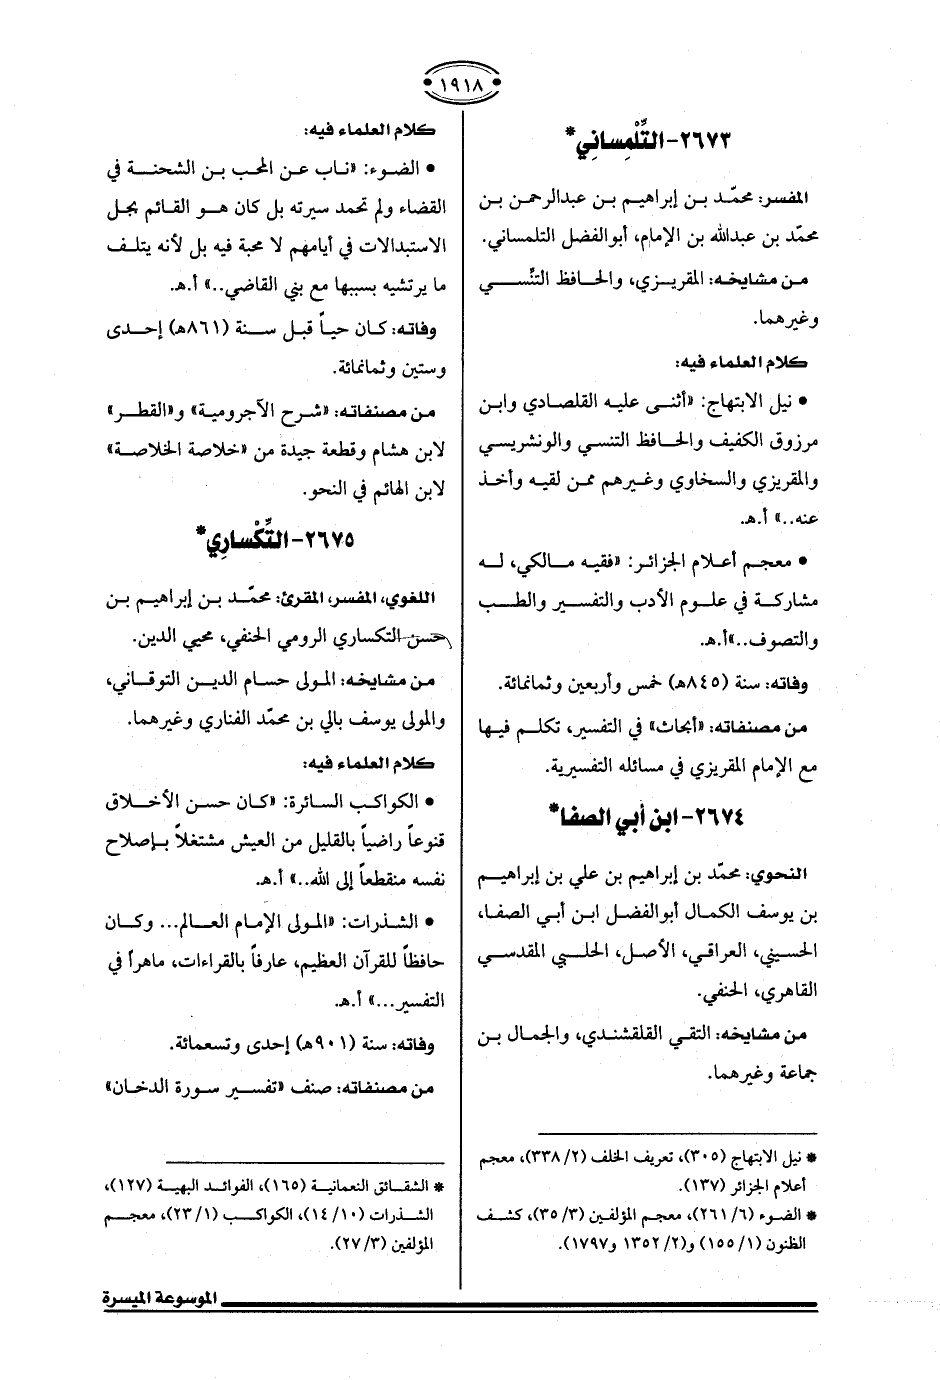 ١٩١٨
٢٦٧٣- التِّلْمِساني*
المفسر: محمّد بن إبراهيم بن عبدالرحمن بن
محمّد بن عبدالله بن الإمام، أبوالفضل التلمساني.
من مشايخه: المقريزي، والحافظ التنَّسي
وغيرهما.
كلام العلماء فيه:
• نيل الابتهاج: «أثنى عليه القلصادي وابن
مرزوق الكفيف والحافظ التنسي والونشريسي
والمقريزي والسخاوي وغيرهم ممن لقيه وأخذ
عنه..» أ.هـ.
• معجم أعلام الجزائر: «فقيه مالكي، له
مشاركة في علوم الأدب والتفسير والطب
والتصوف..»أ.هـ.
وفاته: سنة (٨٤٥هـ) خمس وأربعين وثمانمائة.
من مصنفاته: «أبحاث» في التفسير، تكلم فيها
مع الإمام المقريزي في مسائله التفسيرية.
٢٦٧٤- ابن أبي الصفا*
النحوي: محمّد بن إبراهيم بن علي بن إبراهيم
بن يوسف الكمال أبوالفضل ابن أبي الصفا،
الحسيني، العراقي، الأصل، الحلبي المقدسي
القاهري، الحنفي.
من مشايخه: التقي القلقشندي، والجمال بن
جماعة وغيرهما.
* نيل الابتهاج (٣٠٥)، تعريف الخلف (٢/ ٣٣٨)، معجم
أعلام الجزائر (١٣٧).
* الضوء (٦/ ٢٦١)، معجم المؤلفين (٣/ ٣٥)، كشف
الظنون (١/ ١٥٥) و(٢/ ١٣٥٢ و١٧٩٧).
كلام العلماء فيه:
• الضوء: «ناب عن المحب بن الشحنة في
القضاء ولم تحمد سيرته بل كان هو القائم بجل
الاستبدالات في أيامهم لا محبة فيه بل لأنه يتلف
ما يرتشيه بسببها مع بني القاضي..» أ.هـ.
وفاته: كان حياً قبل سنة (٨٦١هـ) إحدى
وستين وثمانمائة.
من مصنفاته: «شرح الآجرومية» و«القطر»
لابن هشام وقطعة جيدة من «خلاصة الخلاصة»
لابن الهائم في النحو.
٢٦٧٥- التِّكْساري*
اللغوي، المفسر، المقرئ: محمّد بن إبراهيم بن
حسن التكساري الرومي الحنفي، محيي الدين.
من مشايخه: المولى حسام الدين التوقاني،
والمولى يوسف بالي بن محمّد الفناري وغيرهما.
كلام العلماء فيه:
• الكواكب السائرة: «كان حسن الأخلاق
قنوعاً راضياً بالقليل من العيش مشتغلاً بإصلاح
نفسه منقطعاً إلى الله..» أ.هـ.
• الشذرات: «المولى الإمام العالم... وكان
حافظاً للقرآن العظيم، عارفاً بالقراءات، ماهراً في
التفسير...» أ.هـ.
وفاته: سنة (٩٠١هـ) إحدى وتسعمائة.
من مصنفاته: صنف «تفسير سورة الدخان»
* الشقائق النعمانية (١٦٥)، الفوائد البهية (١٢٧)،
الشذرات (١٠/ ١٤)، الكواكب (١/ ٢٣)، معجم
المؤلفين (٣/ ٢٧).
الموسوعة الميسرة